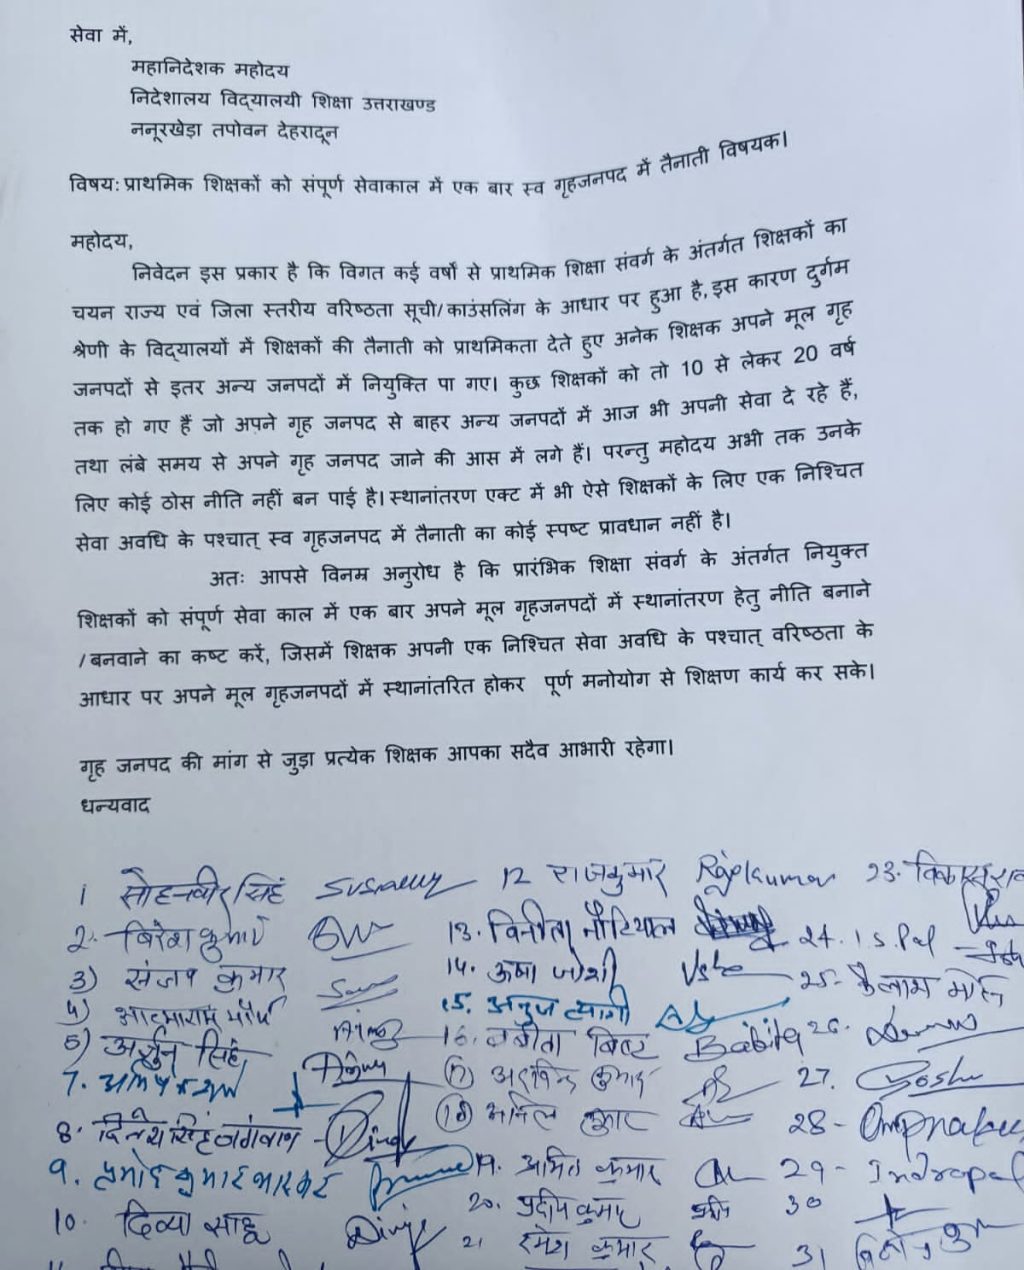 सेवा में,
महानिदेशक महोदय
निदेशालय विद्यालयी शिक्षा उत्तराखण्ड
ननूरखेड़ा तपोवन देहरादून
विषय: प्राथमिक शिक्षकों को संपूर्ण सेवाकाल में एक बार स्व गृहजनपद में तैनाती विषयक।
महोदय,
निवेदन इस प्रकार है कि विगत कई वर्षों से प्राथमिक शिक्षा संवर्ग के अंतर्गत शिक्षकों का
चयन राज्य एवं जिला स्तरीय वरिष्ठता सूची/काउंसलिंग के आधार पर हुआ है, इस कारण दुर्गम
श्रेणी के विद्यालयों में शिक्षकों की तैनाती को प्राथमिकता देते हुए अनेक शिक्षक अपने मूल गृह
जनपदों से इतर अन्य जनपदों में नियुक्ति पा गए। कुछ शिक्षकों को तो 10 से लेकर 20 वर्ष
तक हो गए हैं जो अपने गृह जनपद से बाहर अन्य जनपदों में आज भी अपनी सेवा दे रहे हैं,
तथा लंबे समय से अपने गृह जनपद जाने की आस में लगे हैं। परन्तु महोदय अभी तक उनके
लिए कोई ठोस नीति नहीं बन पाई है। स्थानांतरण एक्ट में भी ऐसे शिक्षकों के लिए एक निश्चित
सेवा अवधि के पश्चात् स्व गृहजनपद में तैनाती का कोई स्पष्ट प्रावधान नहीं है।
अतः आपसे विनम्र अनुरोध है कि प्रारंभिक शिक्षा संवर्ग के अंतर्गत नियुक्त
शिक्षकों को संपूर्ण सेवा काल में एक बार अपने मूल गृहजनपदों में स्थानांतरण हेतु नीति बनाने
/बनवाने का कष्ट करें, जिसमें शिक्षक अपनी एक निश्चित सेवा अवधि के पश्चात् वरिष्ठता के
आधार पर अपने मूल गृहजनपदों में स्थानांतरित होकर पूर्ण मनोयोग से शिक्षण कार्य कर सके।
गृह जनपद की मांग से जुड़ा प्रत्येक शिक्षक आपका सदैव आभारी रहेगा।
धन्यवाद
1 सोहनवीर सिंह 12 राजकुमार Rajkumar 23.
2. कुमार 13. विनीता नौटियाल 24. I.S. Pal
3) संजय कुमार 14. ऊषा जोशी Usha 25. कैलाश
4) आत्माराम 15. अनुज त्यागी
5) अर्जुन सिंह 16. बबीता Babita 26.
7. 17) अरविन्द कुमार 27. Joshi
8. दिनेश सिंह 18) अनिल कुमार 28-
9. प्रमोद कुमार भास्कर 19. अमित कुमार 29- Indrapal
10. दिव्या साहू Divya 20. प्रदीप कुमार 30
21 रमेश कुमार 31